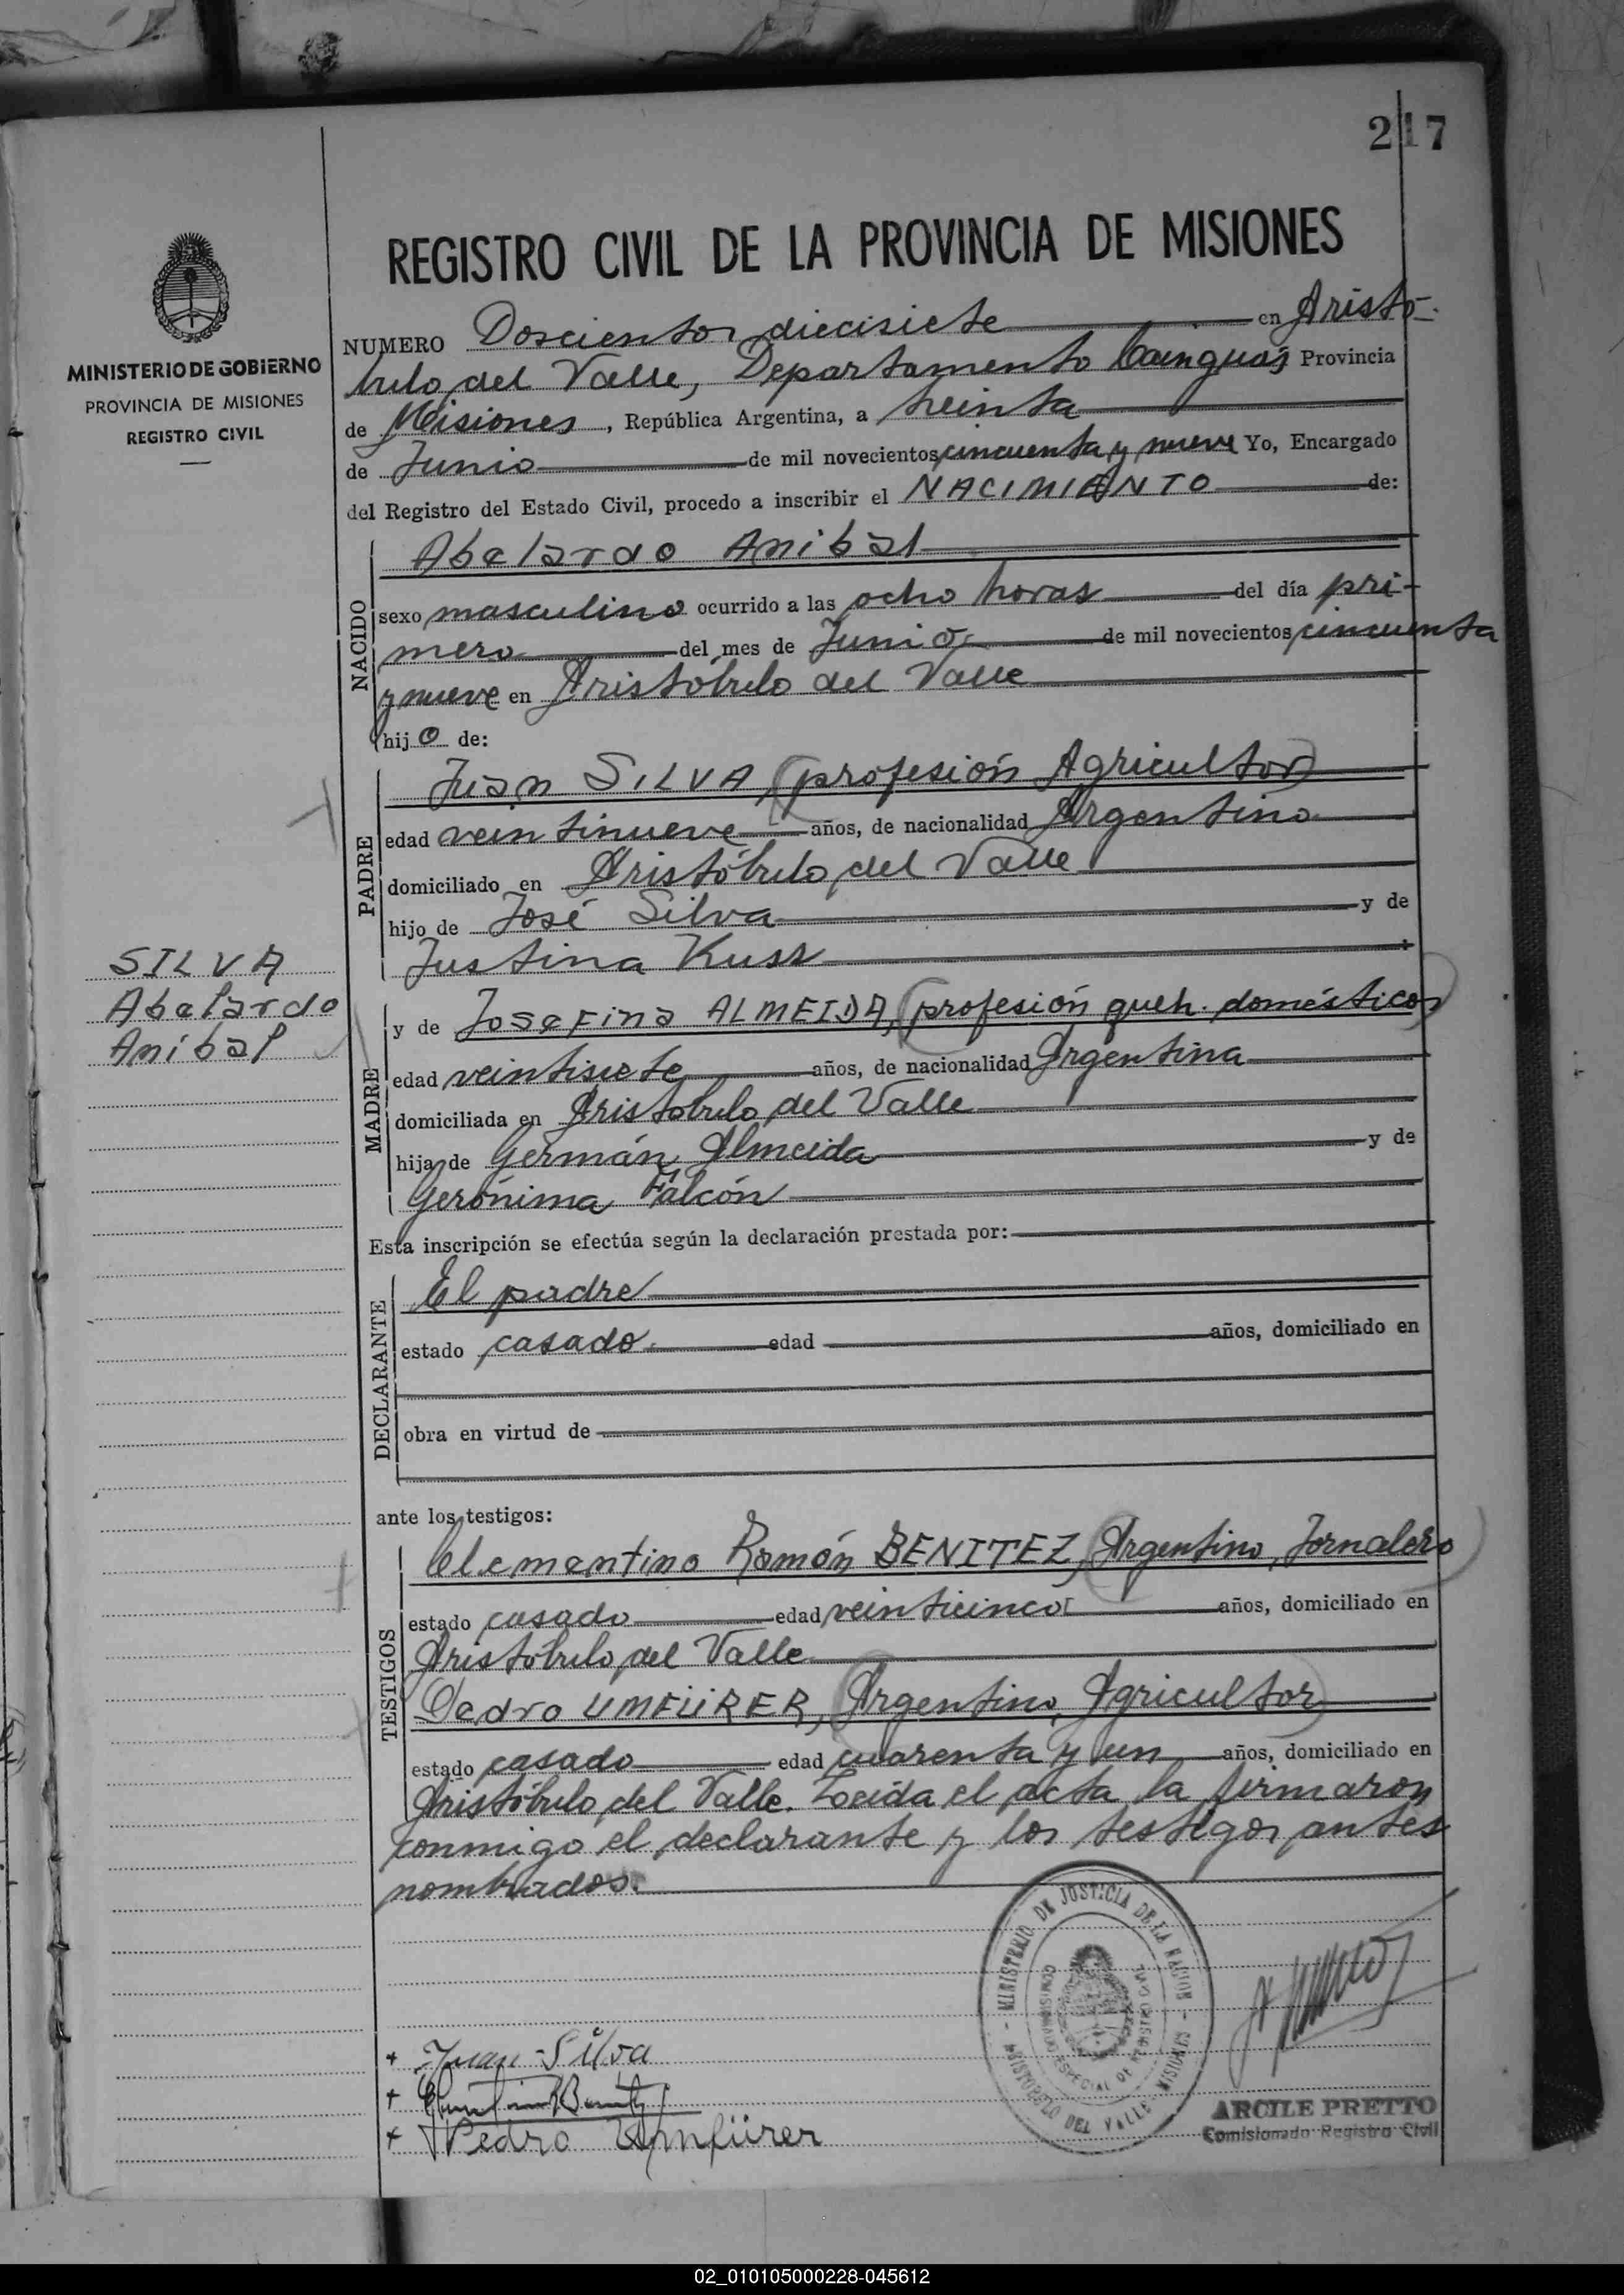 217
REGISTRO CIVIL DE LA PROVINCIA DE MISIONES
MINISTERIO DE GOBIERNO
PROVINCIA DE MISIONES
REGISTRO CIVIL
NUMERO Doscientos diecisiete en Aristó-
bulo del Valle, Departamento Cainguás Provincia
de Misiones, República Argentina, a treinta
de Junio de mil novecientos cincuenta y nueve Yo, Encargado
del Registro del Estado Civil, procedo a inscribir el NACIMIENTO de:
NACIDO
Abelardo Anibal
sexo masculino ocurrido a las ocho horas del día pri-
mero del mes de Junio de mil novecientos cincuenta
y nueve en Aristóbulo del Valle
hijo de:
PADRE
Juan SILVA, (profesión Agricultor)
edad veintinueve años, de nacionalidad Argentino
domiciliado en Aristóbulo del Valle
hijo de José Silva y de
Justina Kuss
SILVA
Abelardo
Anibal
MADRE
y de Josefina ALMEIDA, (profesión queh. domésticos)
edad veintisiete años, de nacionalidad Argentina
domiciliada en Aristobulo del Valle
hija de Germán Almeida y de
Gerónima Falcón
Esta inscripción se efectúa según la declaración prestada por:
DECLARANTE
El padre
estado casado. edad años, domiciliado en
obra en virtud de
ante los testigos:
TESTIGOS
Clementino Ramón BENITEZ, (Argentino, Jornalero)
estado casado edad veinticinco años, domiciliado en
Aristóbulo del Valle
Pedro UMFÜRER, (Argentino, Agricultor)
estado casado edad cuarenta y un años, domiciliado en
Aristóbulo del Valle. Leída el acta la firmaron
conmigo el declarante y los testigos antes
nombrados.
MINISTERIO DE JUSTICIA DE LA NACION
COMISIONADO ESPECIAL DE REGISTRO CIVIL
ARISTOBULO DEL VALLE - MISIONES
+ Juan Silva
+
+ Pedro Umfürer
ARCILE PRETTO
Comisionado Registro Civil
02_010105000228-045612